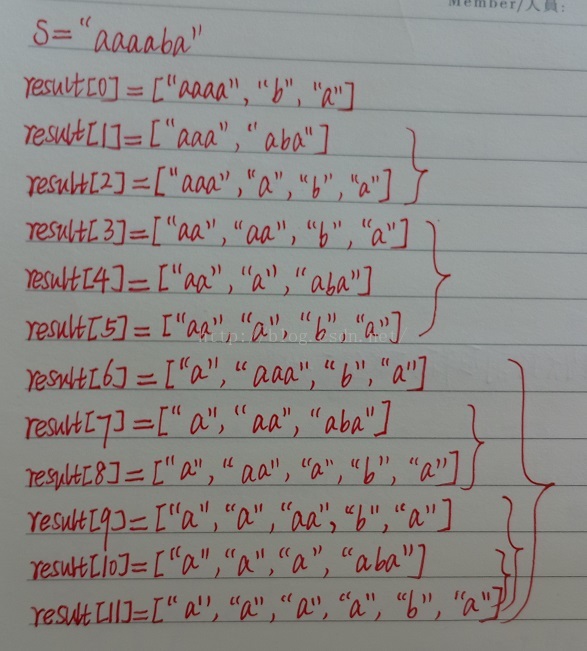 Member/人員:
S="aaaaba"
result[0]=["aaaa","b","a"]
result[1]=["aaa","aba"]
result[2]=["aaa","a","b","a"]
result[3]=["aa","aa","b","a"]
result[4]=["aa","a","aba"]
result[5]=["aa","a","b","a"]
http://blog.csdn.net/
result[6]=["a","aaa","b","a"]
result[7]=["a","aa","aba"]
result[8]=["a","aa","a","b","a"]
result[9]=["a","a","aa","b","a"]
result[10]=["a","a","a","aba"]
result[11]=["a","a","a","a","b","a"]